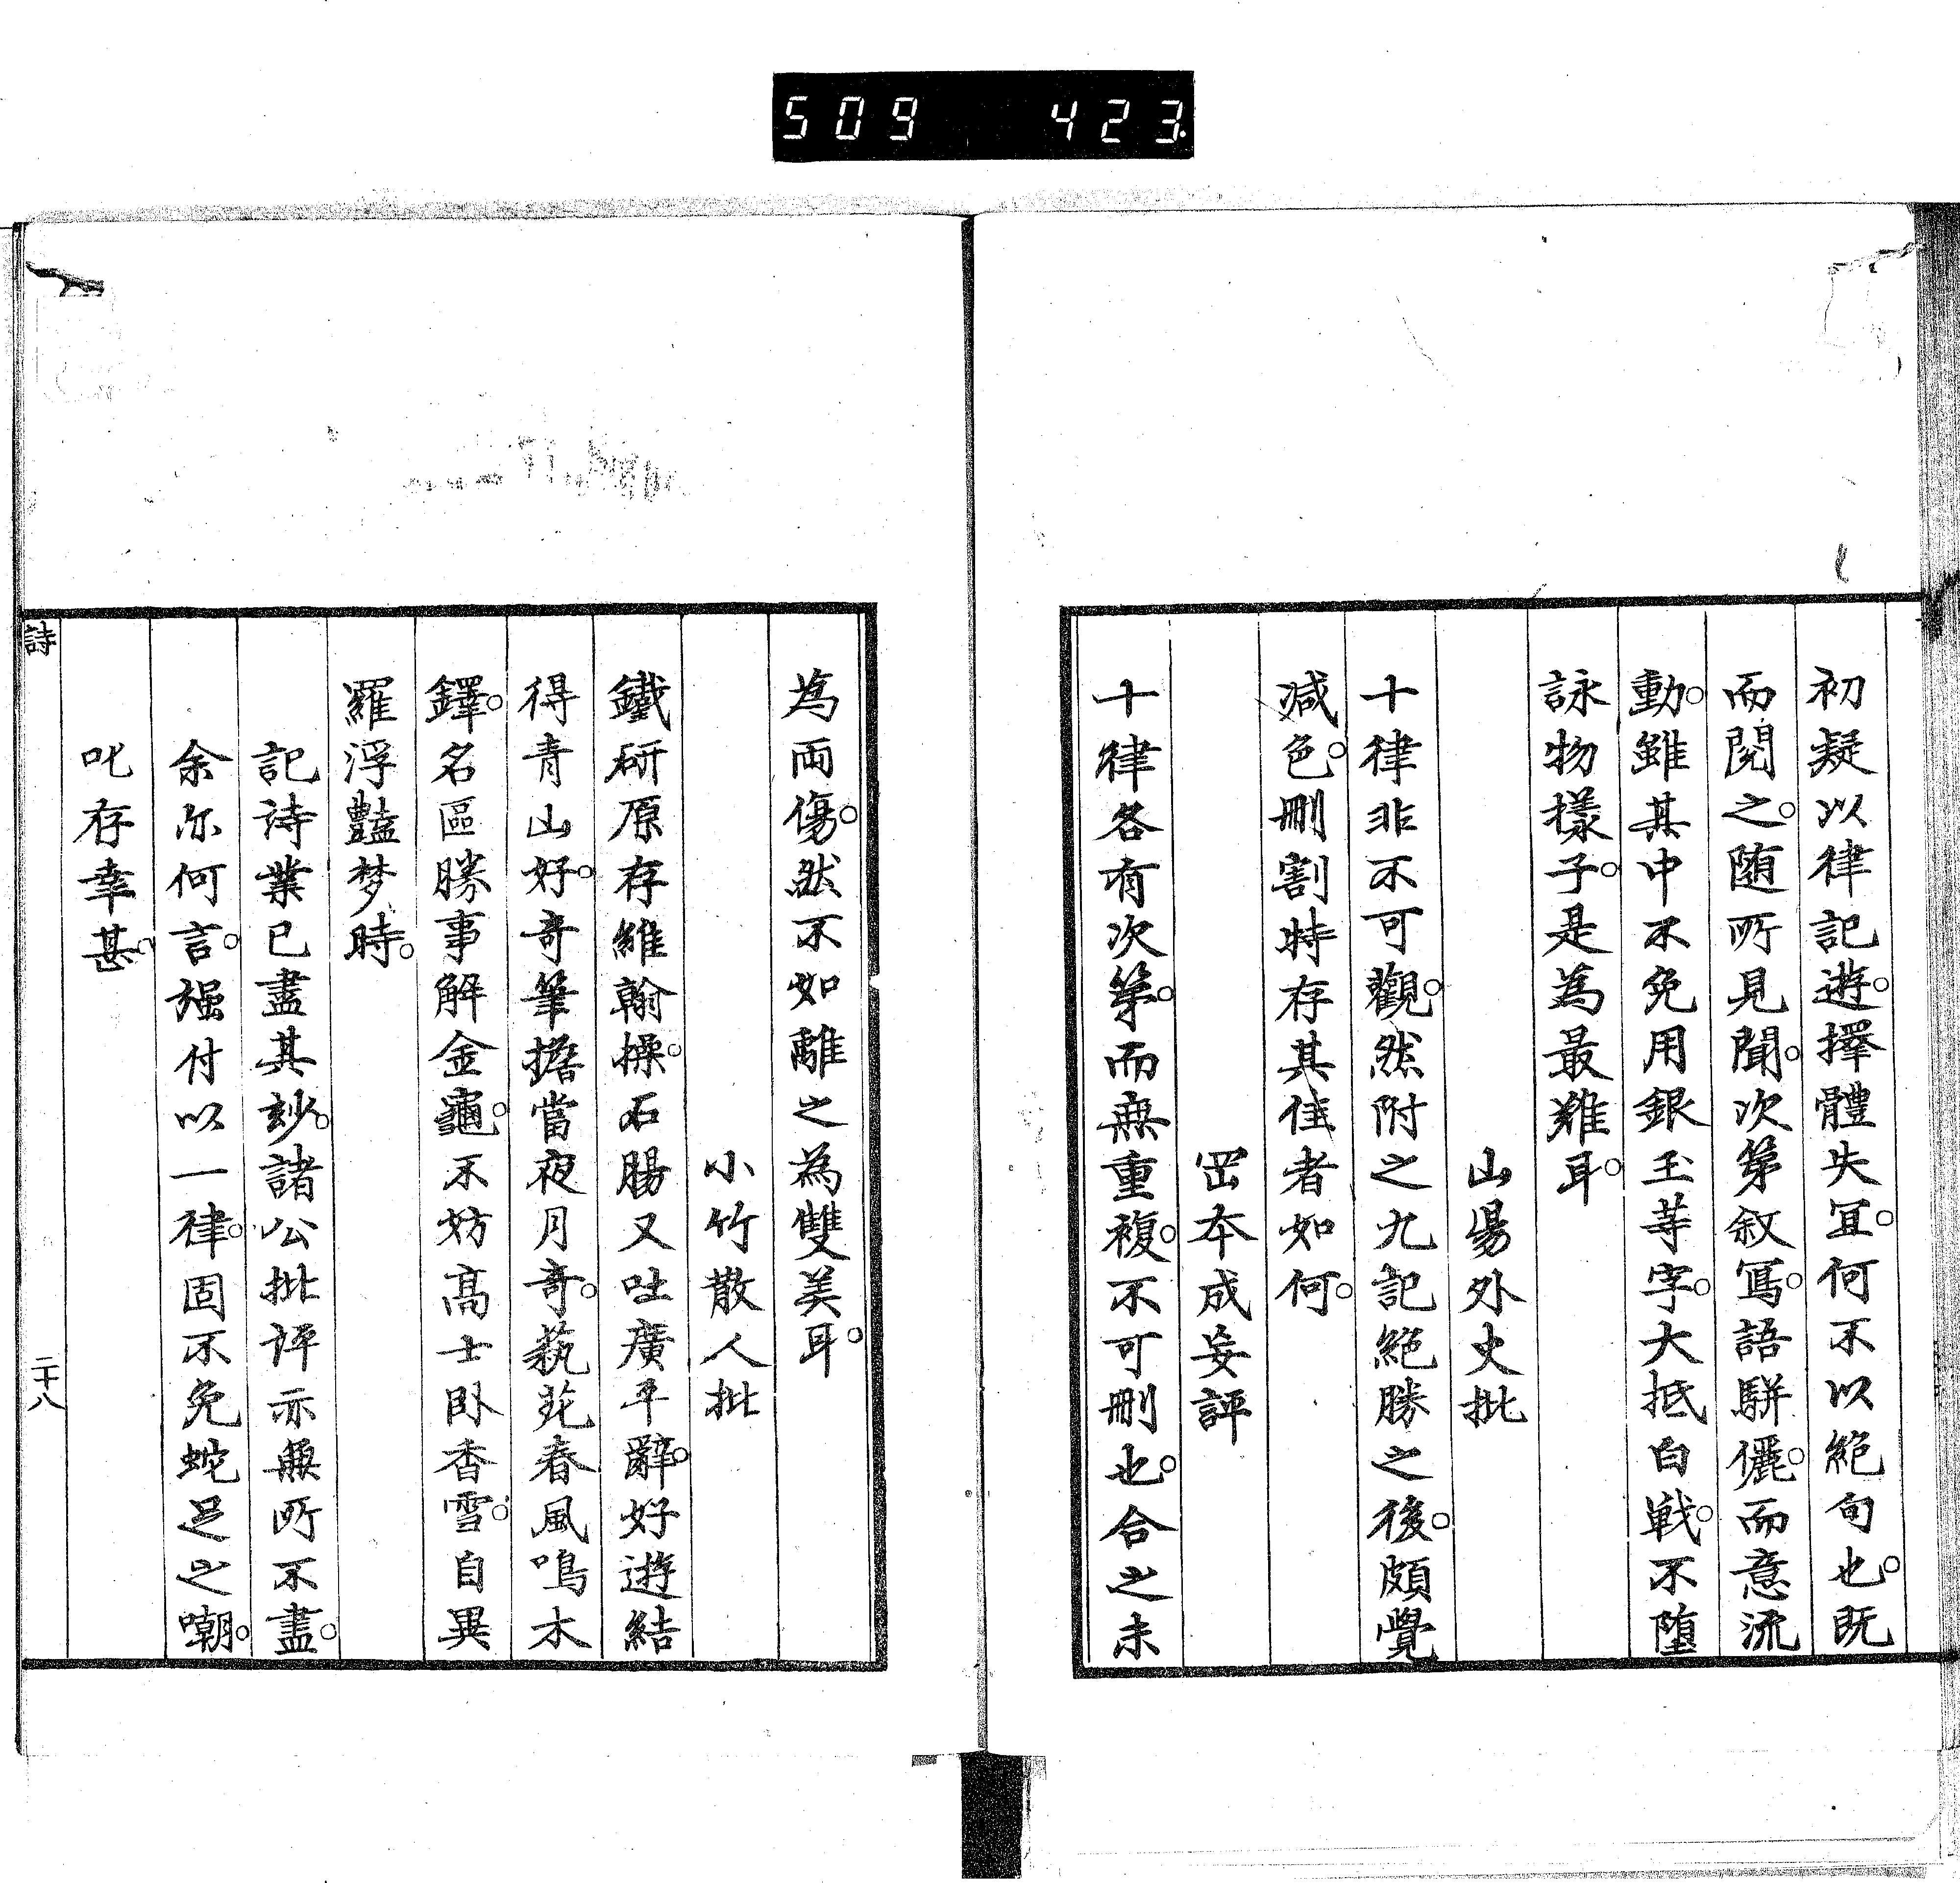 509 423
初疑以律記遊。擇體失宜。何不以絕句也。既
而閱之。随所見聞。次第叙寫。語駢儷。而意流
動。雖其中不免用銀玉等字。大抵白戦。不墮
詠物樣子。是為最難耳。
山陽外史批
十律非不可觀。然附之九記絕勝之後。頗覺
减色。刪割特存其佳者如何。
岡本成妄評
十律各有次第。而無重複。不可刪也。合之未
為両傷。然不如離之為雙美耳。
小竹散人批
鐵研原存維翰操。石腸又吐廣平辭。好遊結
得青山好。奇筆搘當夜月奇。蓺苑春風鳴木
鐸。名區勝事解金龜。不妨高士卧香雪。自異
羅浮豔梦時。
記詩業已盡其玅。諸公批評亦無所不盡。
余尓何言。強付以一律。固不免蛇足之嘲。
叱存幸甚。
詩
二十八